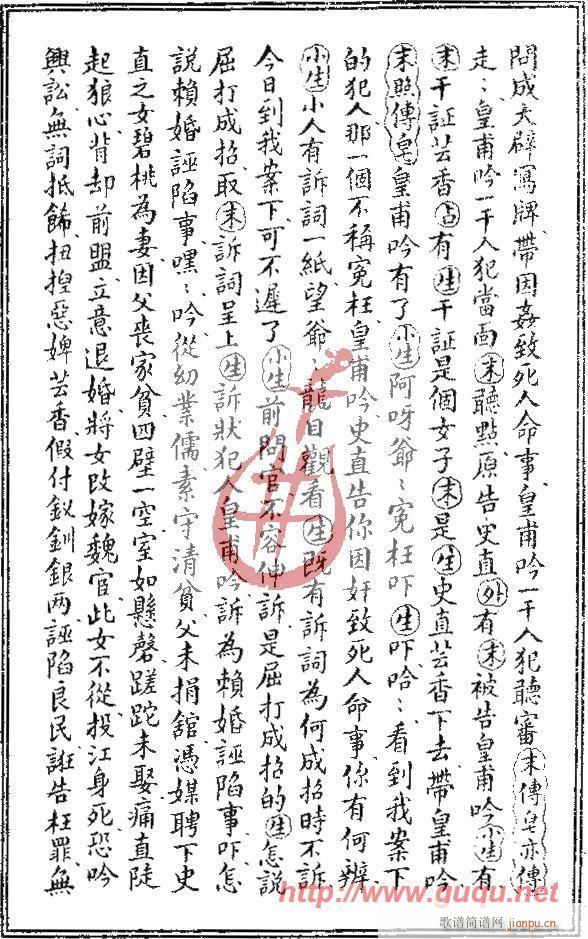 問成大辟寫牌帶因姦致死人命事皇甫吟一干人犯聽審末傳皂亦傳
走〻皇甫吟一干人犯當面末聽點原告史直外有末被告皇甫吟小生有
末干証芸香占有生干証是個女子末是生史直芸香下去帶皇甫吟
末照傳皂皇甫吟有了小生阿呀爺〻寃枉吓生吓哈〻看到我案下
的犯人那一個不稱寃枉皇甫吟史直告你因奸致死人命事係有何辨
小生小人有訴詞一紙望爺〻龍目觀看生既有訴詞為何成招時不訴
今日到我案下可不遲了小生前問官不容伸訴是屈打成招的生怎說
屈打成招取末訴詞呈上生訴狀犯人皇甫吟訴為賴婚誣陷事吓怎
說賴婚誣陷事嘿〻吟從幼業儒素守清貧父未捐舘憑媒聘下史
直之女碧桃為妻因父喪家貧四壁一空室如懸磬蹉跎未娶痛直陡
起狼心背却前盟立意退婚將女改嫁魏官此女不從投江身死恐吟
興訟無詞抵飾扭揑惡婢芸香假付釵釧銀両誣陷良民誑告枉罪無
http://www.guqu.net
歌谱简谱网
jianpu.cn